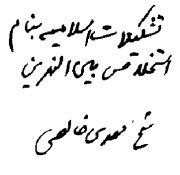 تشکیلات اسلامیه بنام
استخلاص بین النهرین
شیخ مهدی خالصی